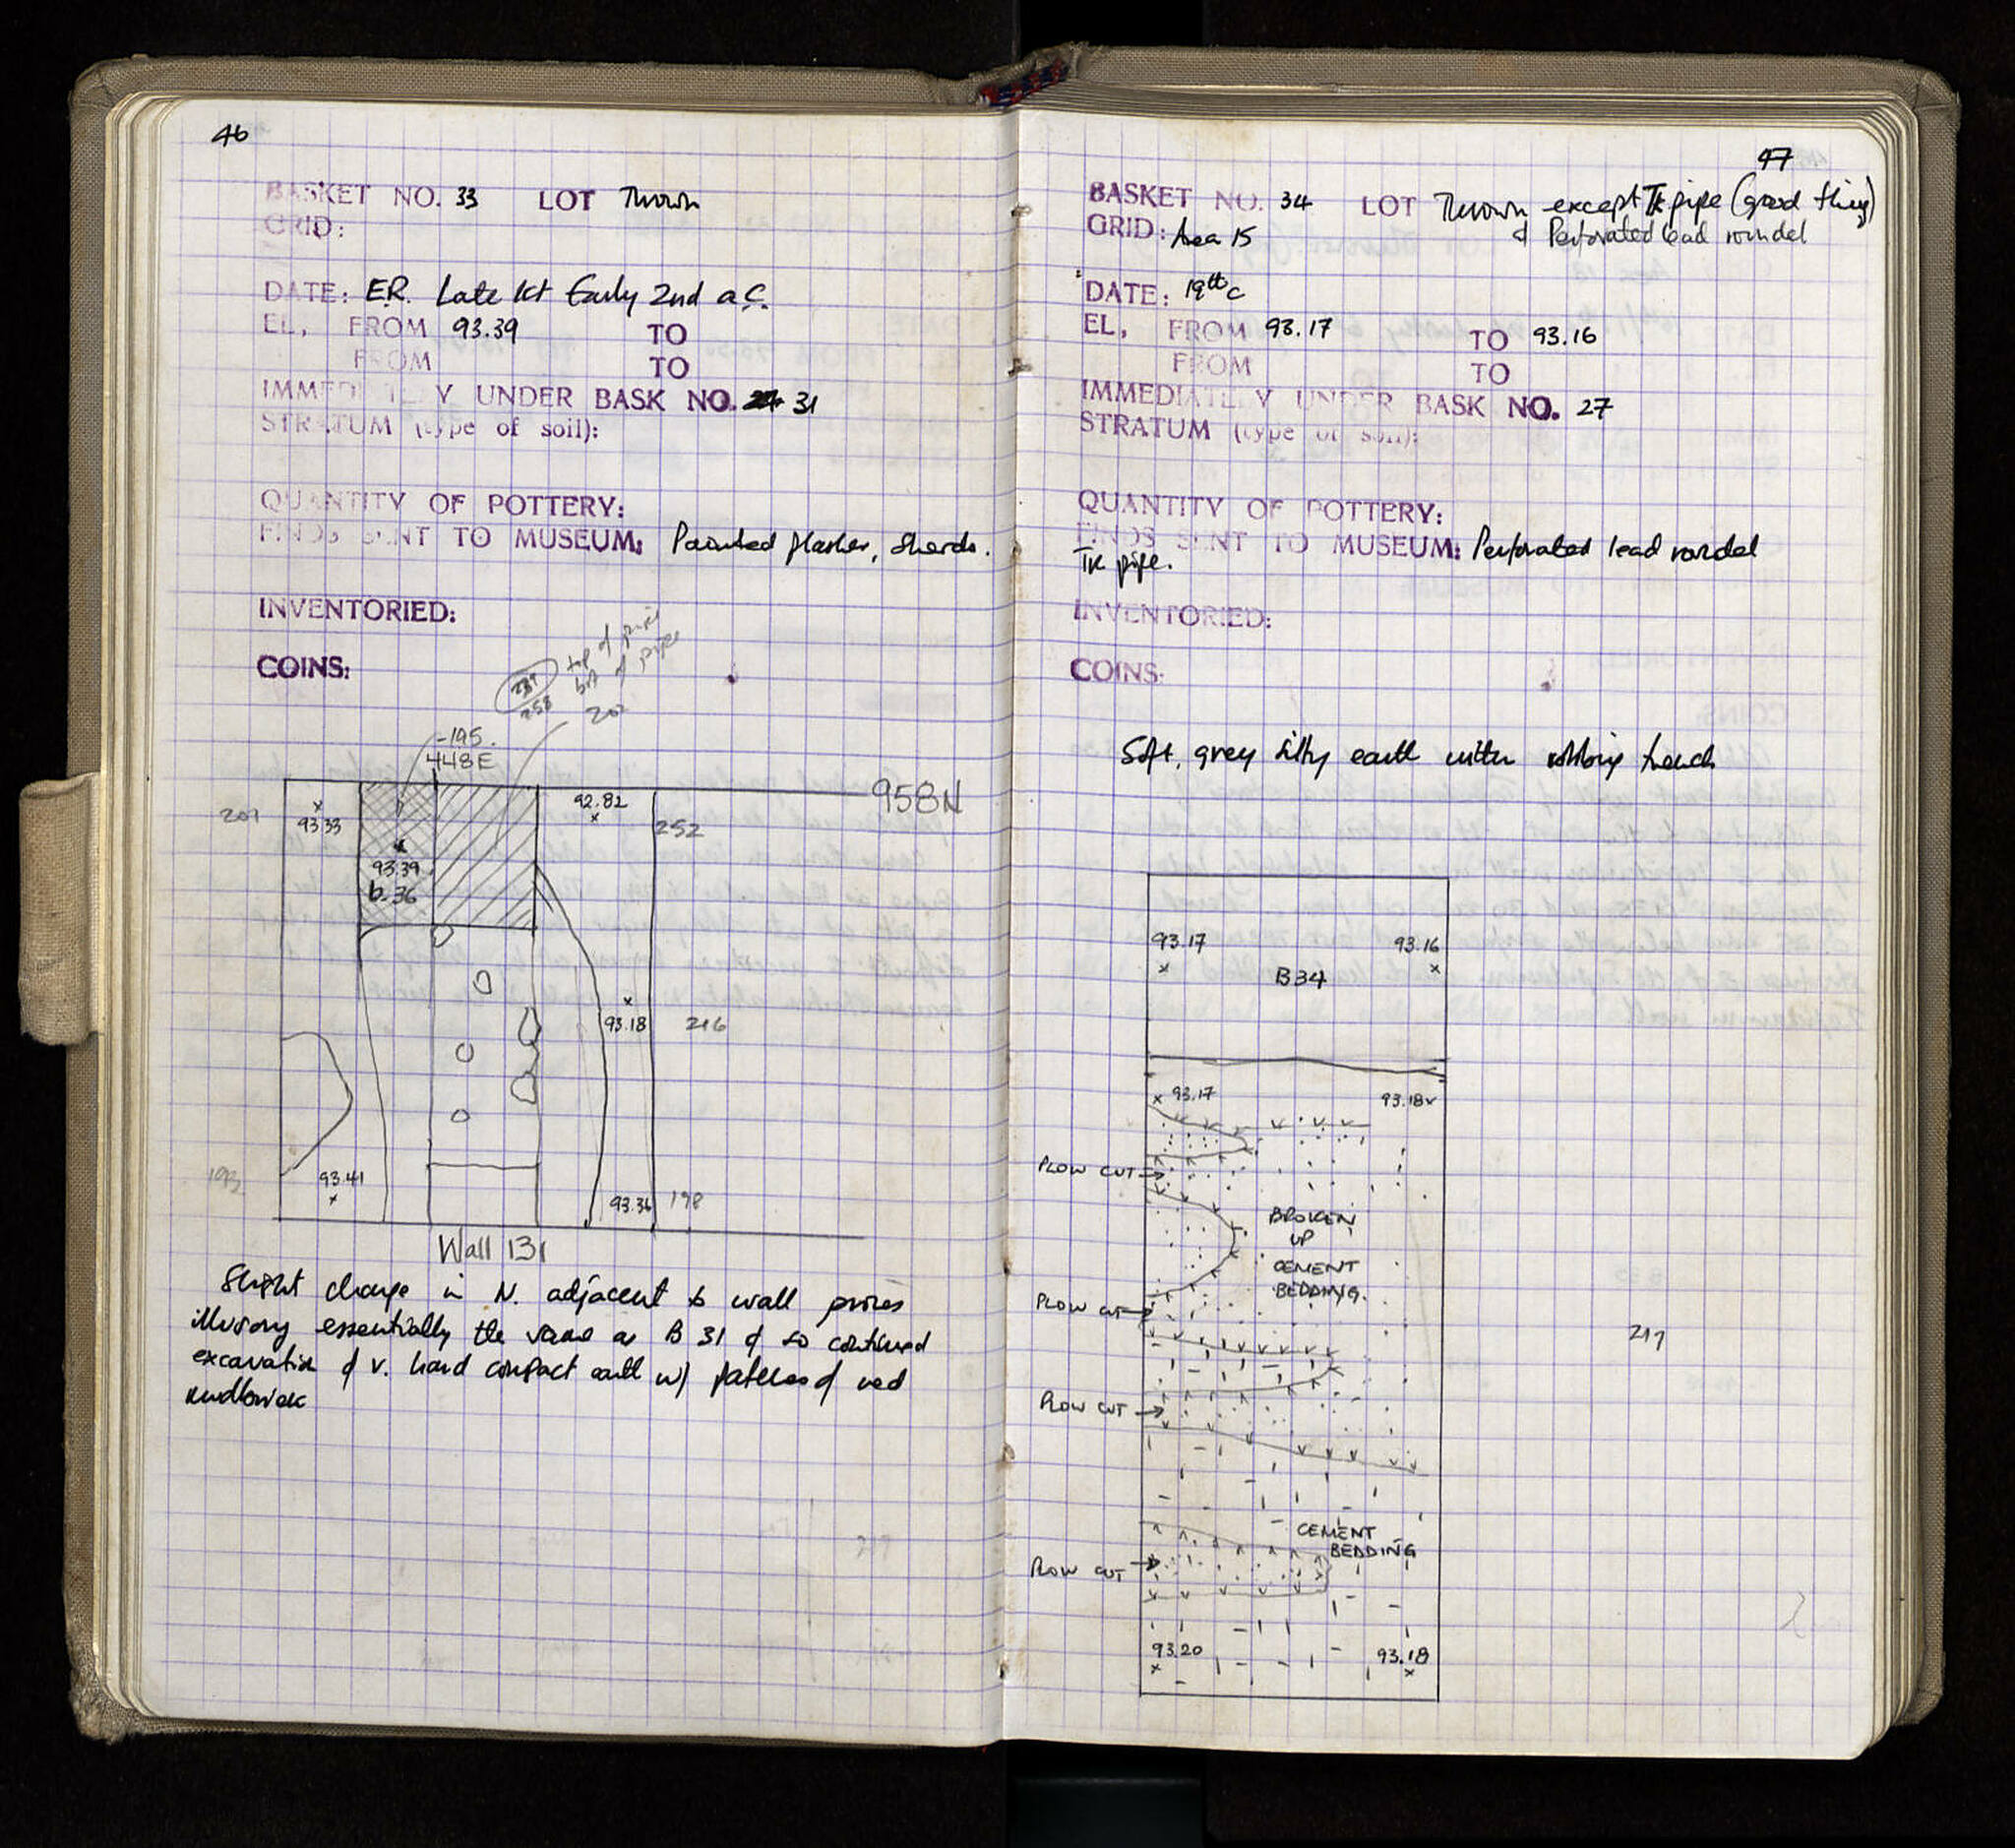 46
BASKET NO. 33 LOT Thrown
GRID:
DATE: E.R. Late 1st Early 2nd a.C.
EL, FROM 93.39 TO
FROM TO
IMMEDIATELY UNDER BASK NO. 31
STRATUM (type of soil):
QUANTITY OF POTTERY:
FINDS SENT TO MUSEUM: Painted plaster, sherds.
INVENTORIED:
COINS:
top of
bot of pipe
258
202
-195.
448E
958N
207
93.33
92.82
252
93.39
b.36
93.18
216
193
93.41
93.36
198
Wall 131
Slight change in N. adjacent to wall proves
illusory essentially the same as B 31 & so continued
excavation of v. hard compact earth w/ patches of red
mudbrick
47
BASKET NO. 34 LOT Thrown except Tk pipe (good thing)
& Perforated lead roundel
GRID: Area 15
DATE: 19th c
EL, FROM 93.17 TO 93.16
FROM TO
IMMEDIATELY UNDER BASK NO. 27
STRATUM (type of soil):
QUANTITY OF POTTERY:
FINDS SENT TO MUSEUM: Perforated lead roundel
Tk pipe.
INVENTORIED:
COINS:
Soft, grey silty earth within robbing trench
93.17
93.16
B34
93.17
93.18
PLOW CUT
BROKEN
UP
CEMENT
BEDDING.
PLOW CUT
217
PLOW CUT
CEMENT
BEDDING
PLOW CUT
93.20
93.18